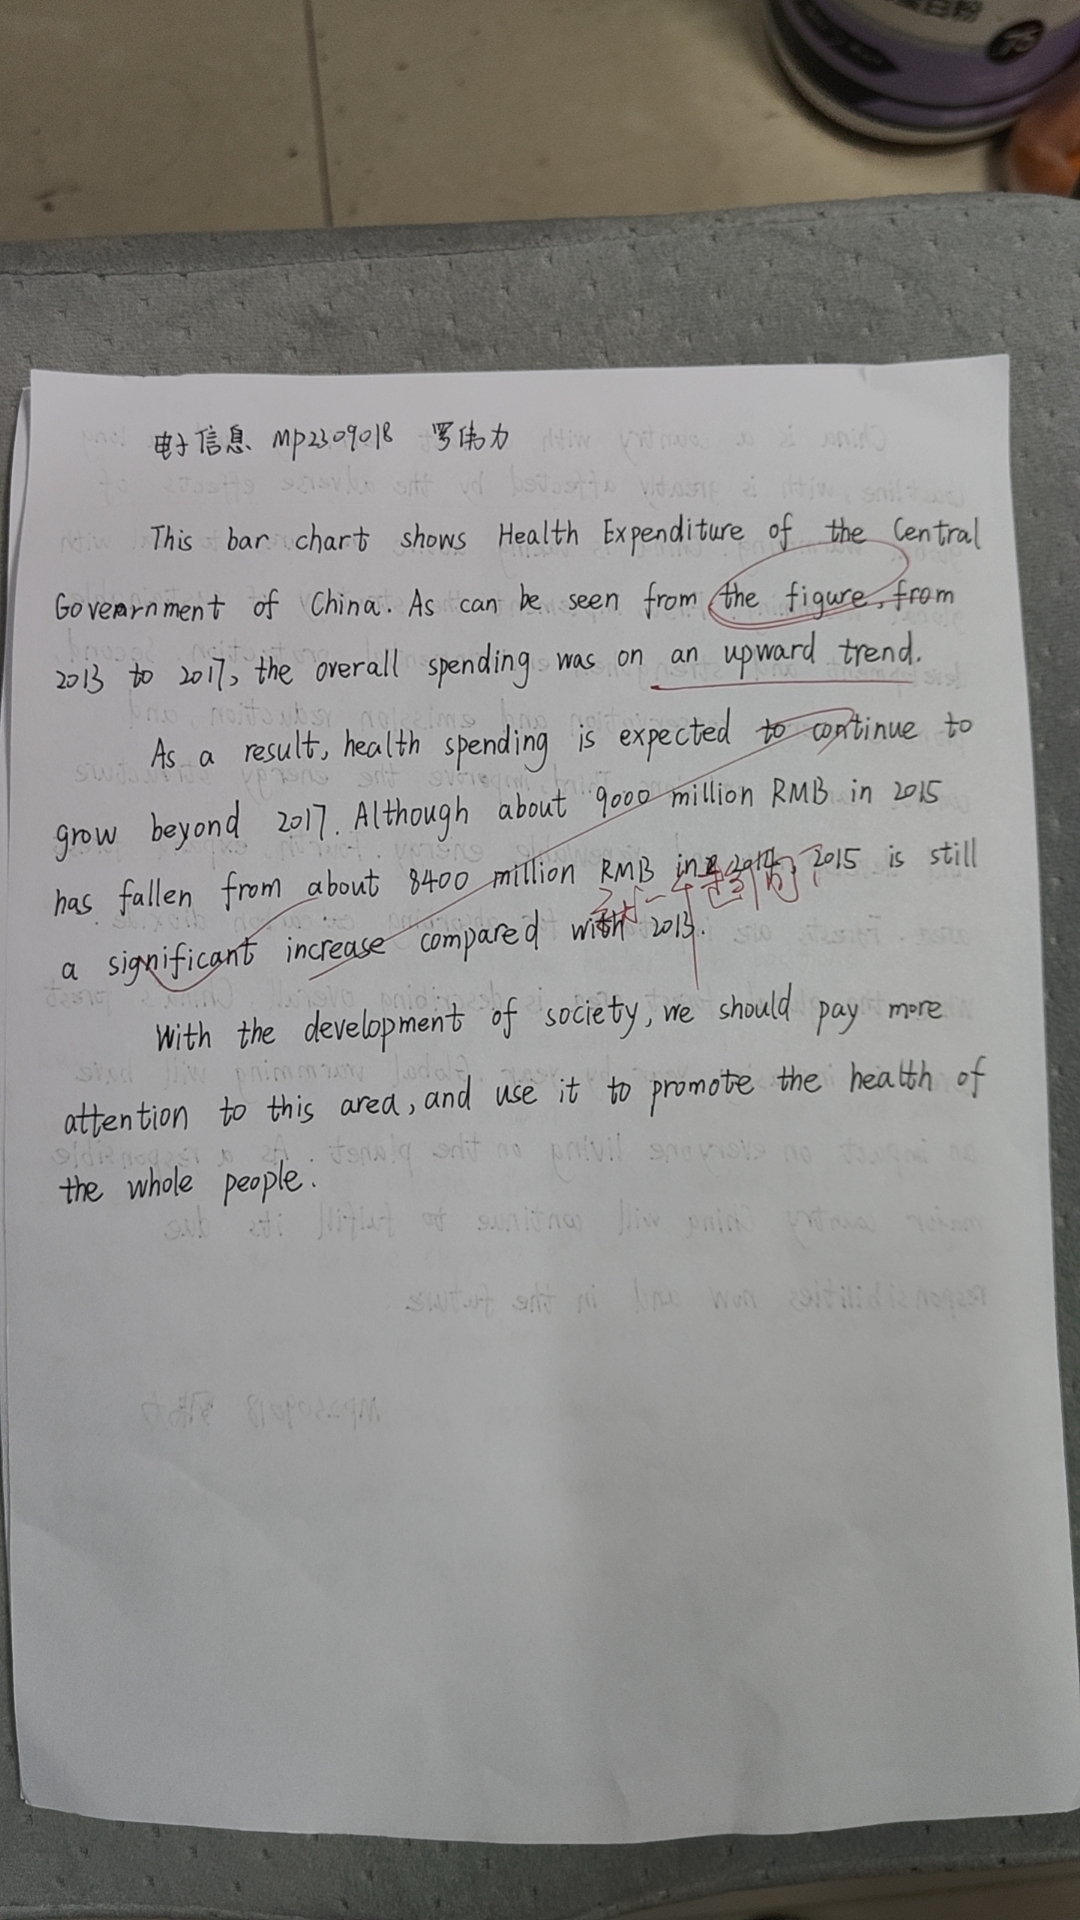 蛋白粉
电子信息 MP2309018 罗伟力
This bar chart shows Health Expenditure of the Central
Government of China. As can be seen from the figure, from
2013 to 2017, the overall spending was on an upward trend.
As a result, health spending is expected to continue to
grow beyond 2017. Although about 9000 million RMB in 2015
has fallen from about 8400 million RMB in 2014, 2015 is still
a significant increase compared with 2013.
With the development of society, we should pay more
attention to this area, and use it to promote the health of
the whole people.